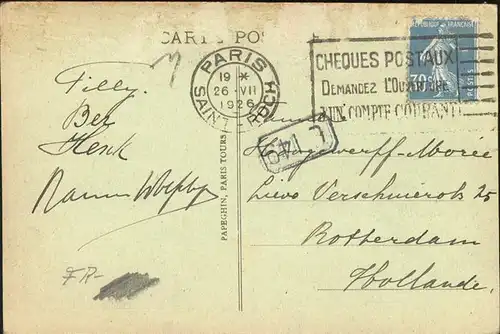 CARTE POS
PARIS
19 *
26 · VII
1926
SAINT ROCH
CHEQUES POSTAUX
DEMANDEZ L'OUVERTURE
D'UN COMPTE COURANT
REPUBLIQUE FRANÇAISE
30c
POSTES
149
Filly.
Bep
Henk
PAPEGHIN, PARIS TOURS
Hoogwerff-Morée
Lieve Verschuierstr. 25
Rotterdam
Hollande.
FR-